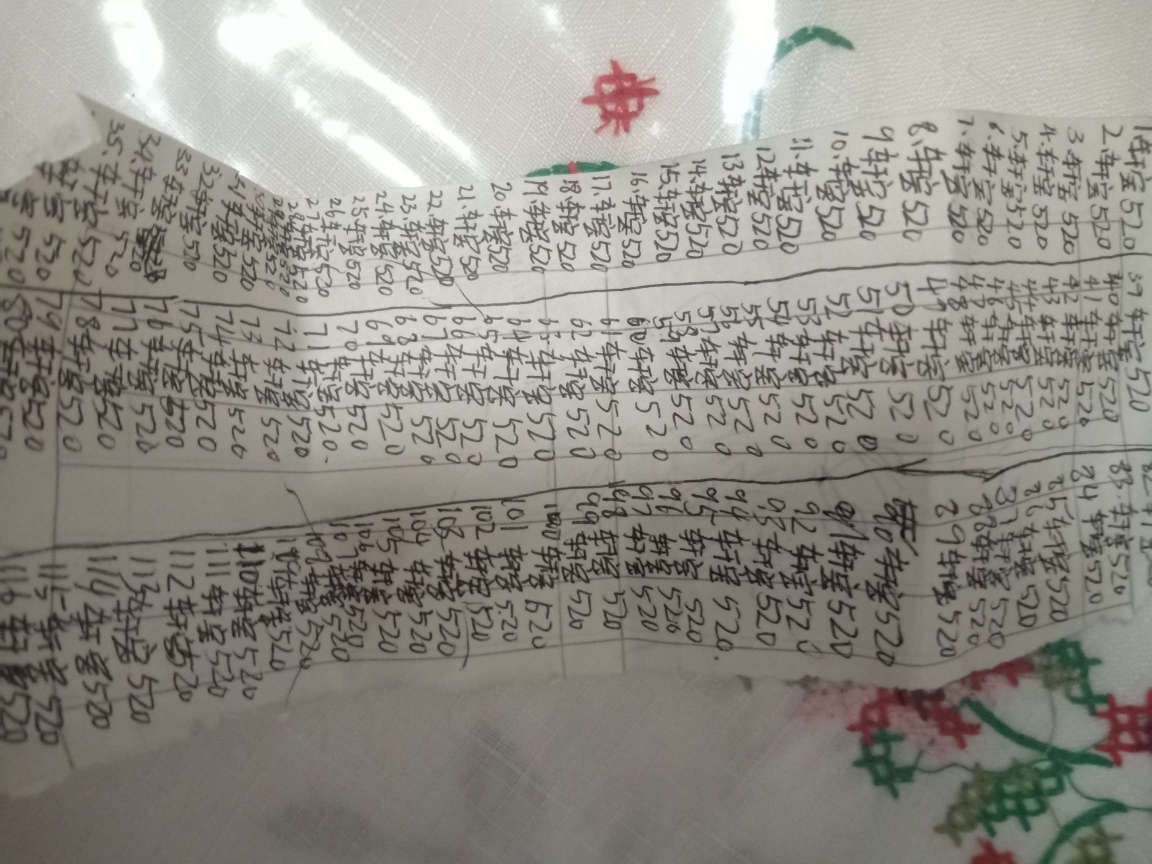 1.轩宝520
2.轩宝520
3.轩宝520
4.轩宝520
5.轩宝520
6.轩宝520
7.轩宝520
8.轩宝520
9.轩宝520
10.轩宝520
11.轩宝520
12.轩宝520
13.轩宝520
14.轩宝520
15.轩宝520
16.轩宝520
17.轩宝520
18.轩宝520
19.轩宝520
20.轩宝520
21.轩宝520
22.轩宝520
23.轩宝520
24.轩宝520
25.轩宝520
26.轩宝520
27.轩宝520
28.轩宝520
32.轩宝520
33.轩宝520
34.轩宝520
35.轩宝520
39轩宝520
40轩宝520
41轩宝520
42轩宝520
43轩宝520
44轩宝520
45轩宝520
46轩宝520
47轩宝520
48轩宝520
49轩宝520
50轩宝520
51轩宝520
52轩宝520
53轩宝520
54轩宝520
55轩宝520
56轩宝520
57轩宝520
58轩宝520
59轩宝520
60轩宝520
61轩宝520
62轩宝520
63轩宝520
64轩宝520
65轩宝520
66轩宝520
67轩宝520
68轩宝520
69轩宝520
70轩宝520
71轩宝520
72轩宝520
73轩宝520
74轩宝520
75轩宝520
76轩宝520
77轩宝520
78轩宝520
79轩宝520
80轩宝520
83.轩宝520
84轩宝520
85轩宝520
86轩宝520
87轩宝520
88轩宝520
89轩宝520
90轩宝520
91轩宝520
92轩宝520
93轩宝520
94轩宝520
95轩宝520
96轩宝520
97轩宝520
98轩宝520
99轩宝520
100轩宝520
101轩宝520
102轩宝520
103轩宝520
104轩宝520
105轩宝520
106轩宝520
107轩宝520
108轩宝520
109轩宝520
110轩宝520
111轩宝520
112轩宝520
113轩宝520
114轩宝520
115轩宝520
116轩宝520